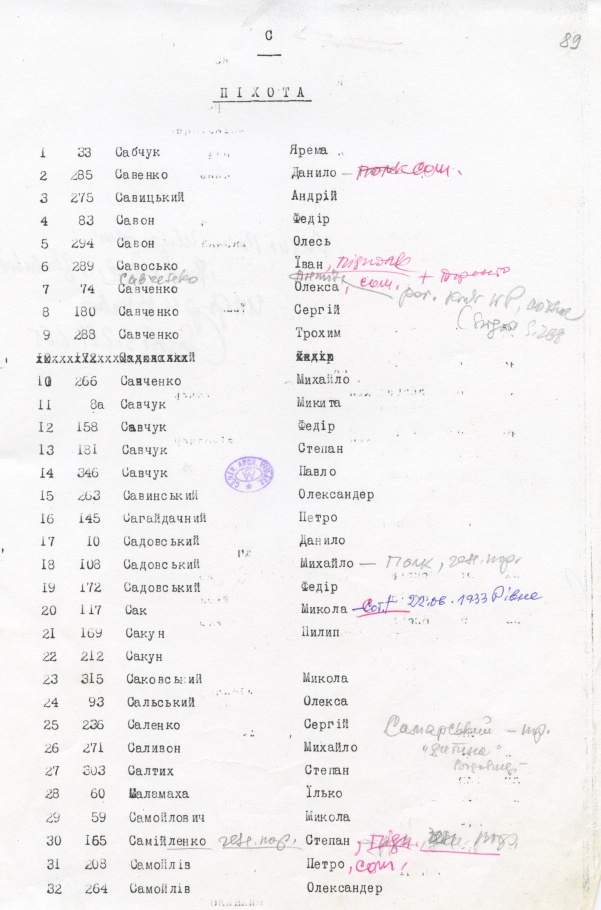 С
89
ПІХОТА
1 33 Сабчук Ярема
2 285 Савенко Данило – полк сот.
3 275 Савицький Андрій
4 83 Савон Федір
5 294 Савон Олесь
6 289 Савосько Їван, підполк
7 74 Савченко Олекса, сот. + Торонто
8 180 Савченко Сергій
9 288 Савченко Трохим
172 Садовський Федір
10 266 Савченко Михайло
11 8а Савчук Микита
12 158 Савчук Федір
13 181 Савчук Степан
14 346 Савчук Павло
15 263 Савинський Олександер
16 145 Сагайдачний Петро
17 10 Садовський Данило
18 108 Садовський Михайло – Полк, ген. пор.
19 172 Садовський Федір
20 117 Сак Микола – Сот. † 22.06.1933 Рівне
21 169 Сакун Пилип
22 212 Сакун
23 315 Саковський Микола
24 93 Сальський Олекса
25 236 Саленко Сергій
Самарський – пор.
26 271 Саливон Михайло
27 303 Салтих Степан
28 60 Шаламаха Їлько
29 59 Самойлович Микола
30 165 Самійленко ген. пор. Степан,
31 208 Самойлів Петро, сот.
32 264 Самойлів Олександер